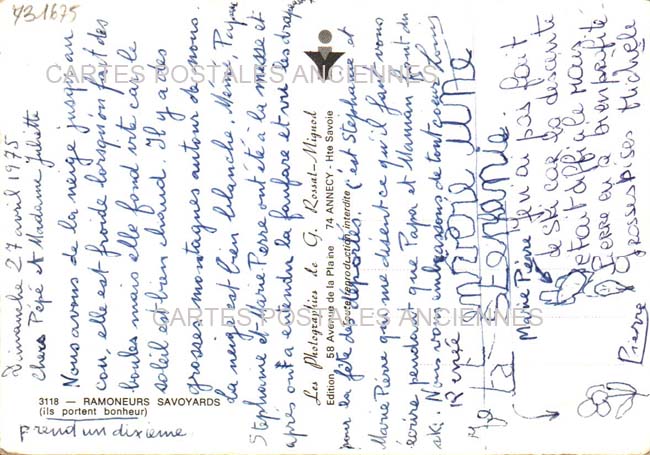 731675
CARTES POSTALES ANCIENNES
CARTES POSTALES ANCIENNES
Dimanche 27 avril 1975
Chers Pépé et Madame Juliette
Nous avons de la neige jusqu'au
cou, elle est froide lorsqu'on fait des
boules mais elle fond vite car le
soleil est bien chaud. Il y a des
grosses montagnes autour de nous.
La neige est bien blanche. Mémé, Papa
Stephanie et Marie Pierre ont été à la messe et
après ont a etendu la fanfare et vu les drapeaux
pour la fête des déportés. C'est Stephanie et
Marie Pierre qui me disent ce qu'il faut vous
écrire pendant que Papa et Maman font du
ski. Nous vous embrassons de tout coeur tous
Renée
STEPhANIE
Marie Pierre
Je n'ai pas fait
de ski car la descente
était difficile mais
Pierre en a bien profité
Grosses bises Michèle
Pierre
Les Photographies de G. Rossat-Mignot
Edition 58 Avenue de la Plaine 74 ANNECY - Hte Savoie
(toute reproduction interdite)
3118 — RAMONEURS SAVOYARDS
(ils portent bonheur)
prend un dixieme